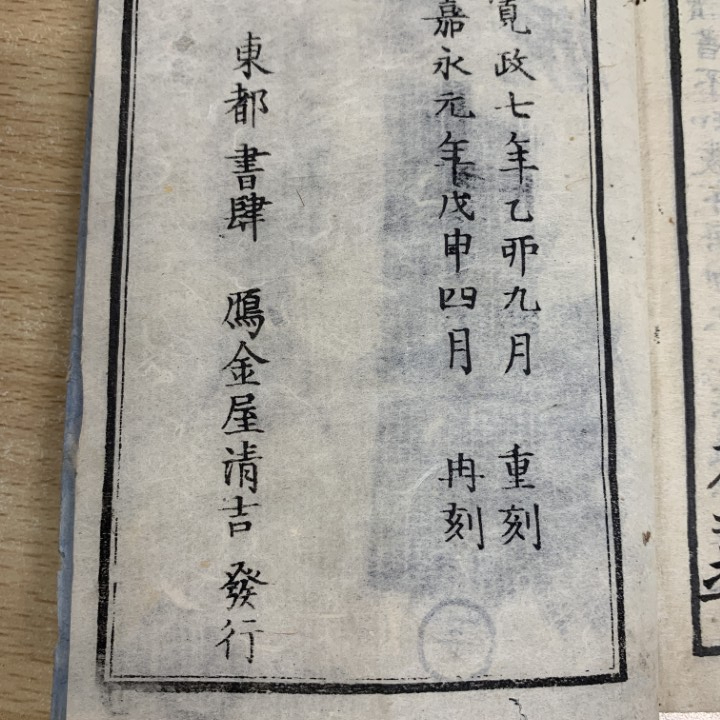 寛政七年乙卯九月 重刻
嘉永元年戊申四月 再刻
東都書肆 鴈金屋清吉 發行